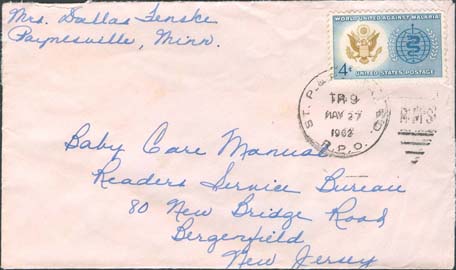 Mrs. Dallas Fenske
Paynesville, Minn.
WORLD UNITED AGAINST MALARIA
4¢
UNITED STATES POSTAGE
ST. P. &
TR 9
MAY 27
1962
R.P.O.
RMS
Baby Care Manual
Readers Service Bureau
80 New Bridge Road
Bergenfield
New Jersey